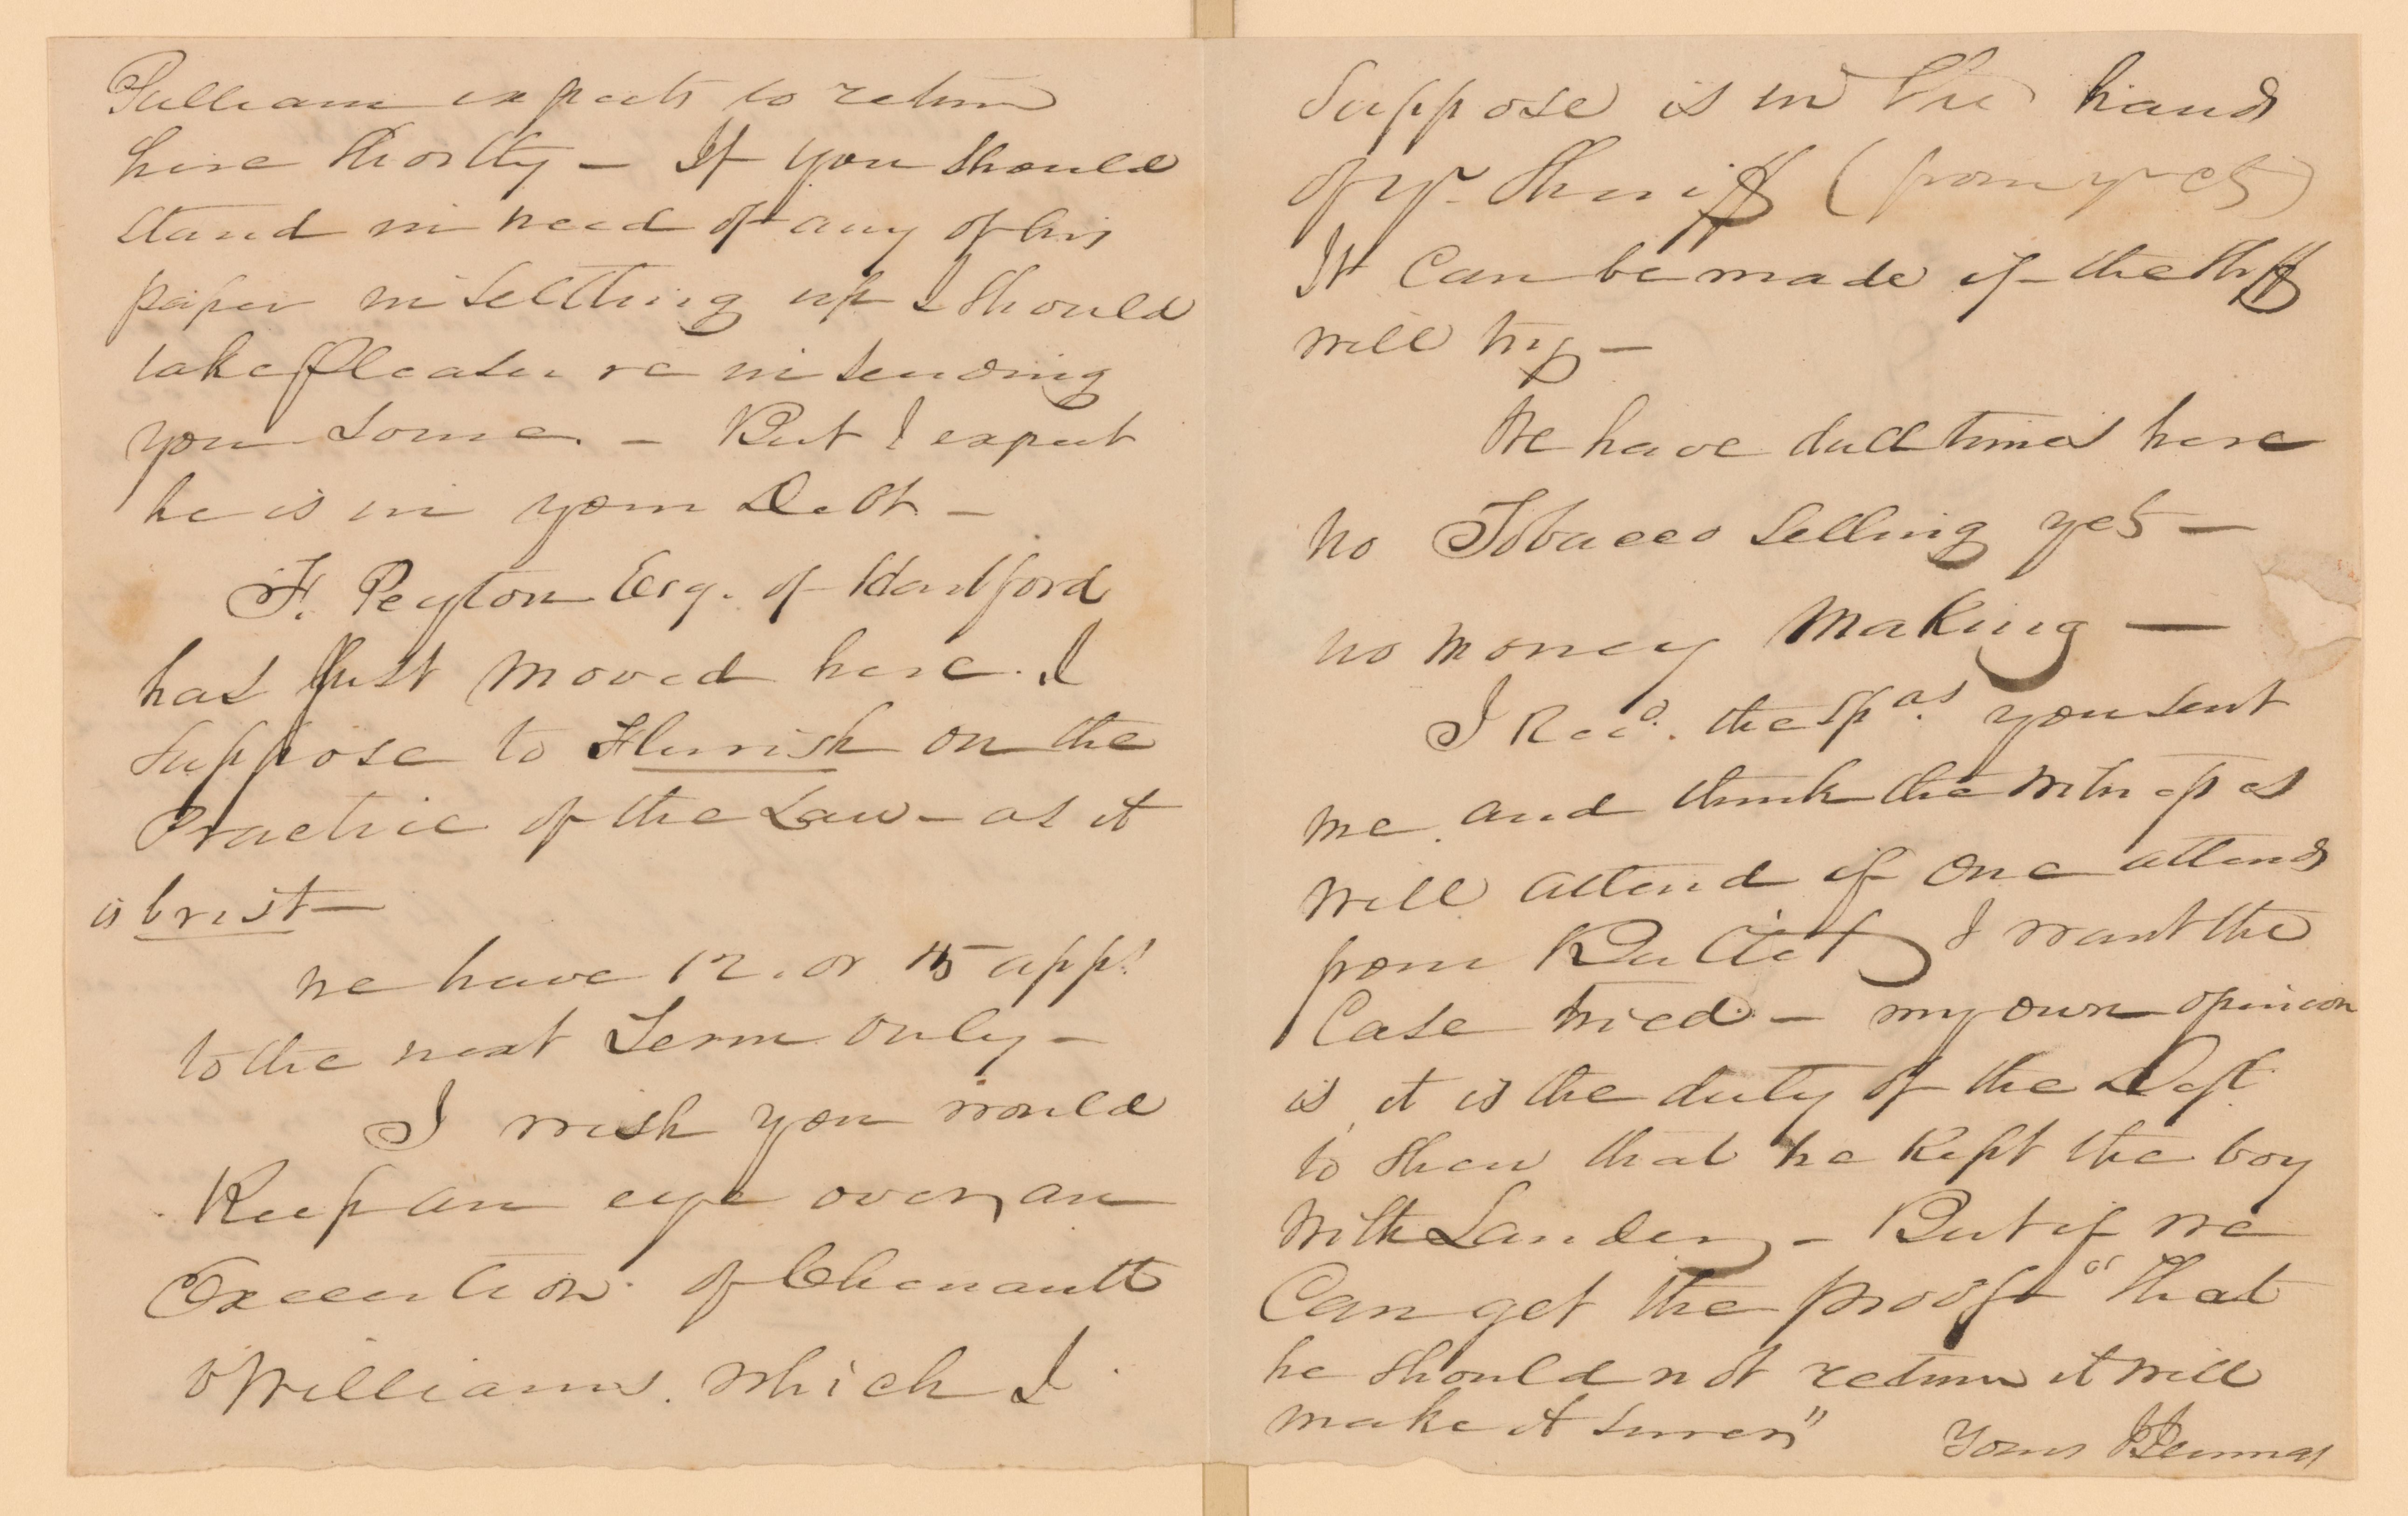 Pulliam expects to return
here shortly – If you should
stand in need of any of his
paper in settling up I should
take pleasure in sending
you some. – But I expect
he is in your Debt –
F. Peyton Esq. of Hartford
has just moved here. I
suppose to flurish on the
Practice of the Law – as it
is brist –
we have 12. or 15 appl
to the next Term only –
I wish you would
Keep an eye over an
Execution of Chenault
v Williams. which I
suppose is in the hands
of yr. Sheriff (from yr ct)
It can be made if the Shff
will try –
We have dull times here
no Tobacco selling yet –
no money making –
I Recd. the spas you sent
me and think the witnesses
will attend if one attends
from I want the
Case tried – my own opinion
is it is the duty of the Deft.
to shew that he kept the boy
with Lander – But if we
Can get the proof "that
he should not return it will
make it surer"
Yours